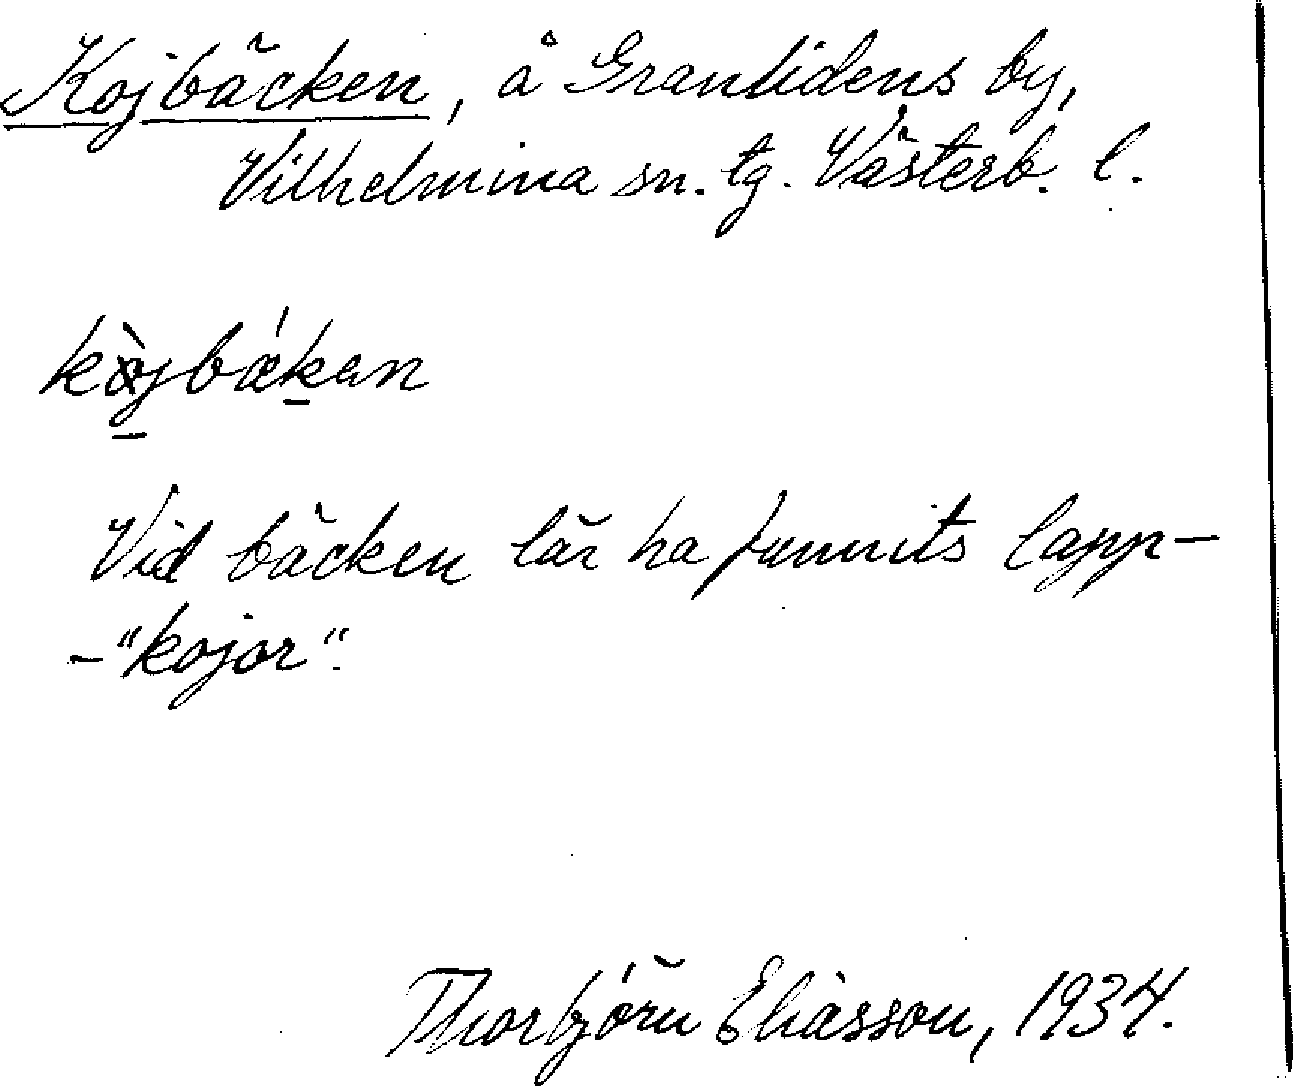 Kojbäcken, å Granlidens by,
Vilhelmina sn. tg. Västerb. l.
kòjbǽkan
Vid bäcken lär ha funnits lapp-
-"kojor".
Thorbjörn Eliasson, 1934.